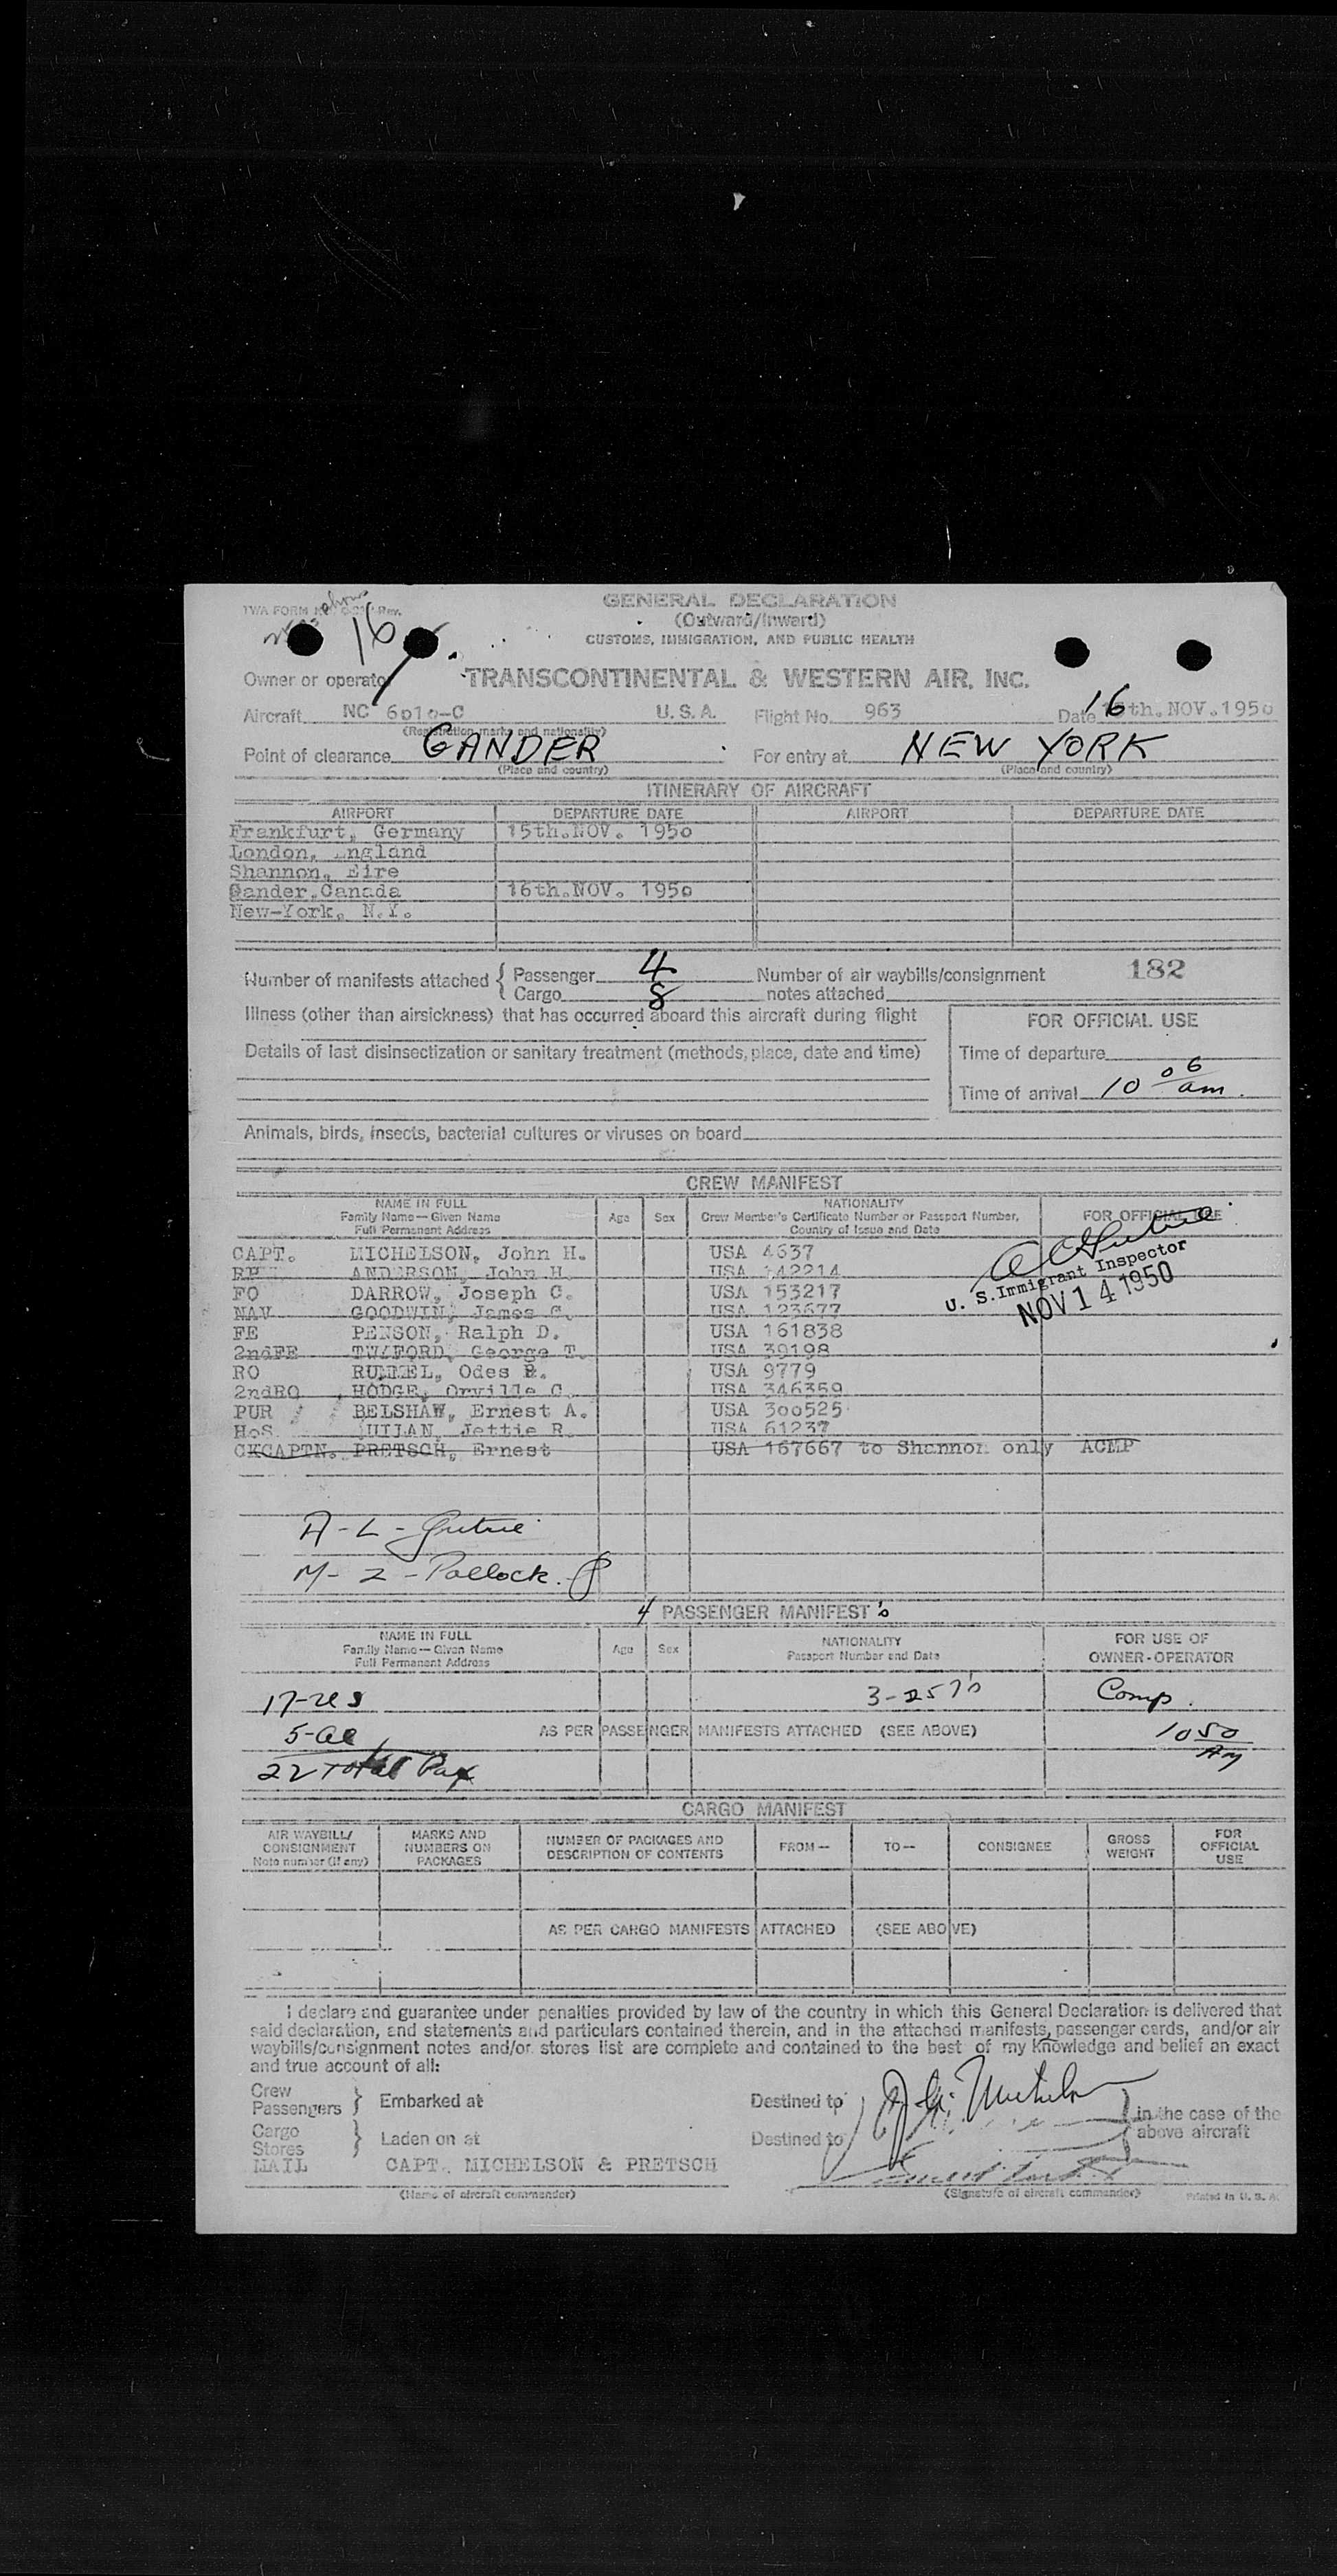 TWA FORM Rev.
16
GENERAL DECLARATION
(Outward/Inward)
CUSTOMS, IMMIGRATION, AND PUBLIC HEALTH
Owner or operator TRANSCONTINENTAL & WESTERN AIR, INC.
Aircraft NC 6010-C U.S.A. Flight No. 963 Date 16 th.NOV.1950
(Registration marks and nationality)
Point of clearance GANDER For entry at NEW YORK
(Place and country) (Place and country)
ITINERARY OF AIRCRAFT
AIRPORT DEPARTURE DATE AIRPORT DEPARTURE DATE
Frankfurt, Germany 15th.NOV. 1950
London, England
Shannon, Eire
Gander,Canada 16th.NOV. 1950
New-York, N.Y.
Number of manifests attached { Passenger 4 Number of air waybills/consignment 182
Cargo 8 notes attached
Illness (other than airsickness) that has occurred aboard this aircraft during flight
FOR OFFICIAL USE
Details of last disinsectization or sanitary treatment (methods, place, date and time)
Time of departure
Time of arrival 10 06 am.
Animals, birds, insects, bacterial cultures or viruses on board
CREW MANIFEST
NAME IN FULL
Family Name—Given Name
Full Permanent Address
Age Sex
NATIONALITY
Crew Member's Certificate Number or Passport Number,
Country of Issue and Date
FOR OFFICIAL USE
CAPT. MICHELSON, John H. USA 4637
ANDERSON, John H. USA 142214
FO DARROW, Joseph C. USA 153217
NAV GOODWIN, James USA 123677
FE PENSON, Ralph D. USA 161838
2ndFE TWIFORD, George T. USA 39198
RO RUMMEL, Odes USA 9779
2ndRO HODGE, Orville C. USA 346359
PUR BELSHAW, Ernest A. USA 300525
HoS. Jettie R. USA 61237
CKCAPTN. PRETSCH, Ernest USA 167667 to Shannon only ACMP
U. S. Immigrant Inspector
NOV 14 1950
A-L-Gutrie
M-Z-Pollock.
4 PASSENGER MANIFEST's
NAME IN FULL
Family Name—Given Name
Full Permanent Address
Age Sex
NATIONALITY
Passport Number and Date
FOR USE OF
OWNER-OPERATOR
17-res 3-257's Comp.
5-al AS PER PASSENGER MANIFESTS ATTACHED (SEE ABOVE) 10 50 AM
22 Total Pax
CARGO MANIFEST
AIR WAYBILL/
CONSIGNMENT
Note number (if any)
MARKS AND
NUMBERS ON
PACKAGES
NUMBER OF PACKAGES AND
DESCRIPTION OF CONTENTS
FROM— TO— CONSIGNEE
GROSS
WEIGHT
FOR
OFFICIAL
USE
AS PER CARGO MANIFESTS ATTACHED (SEE ABOVE)
I declare and guarantee under penalties provided by law of the country in which this General Declaration is delivered that
said declaration, and statements and particulars contained therein, and in the attached manifests, passenger cards, and/or air
waybills/consignment notes and/or stores list are complete and contained to the best of my knowledge and belief an exact
and true account of all:
Crew
Passengers } Embarked at Destined to
Cargo
Stores } Laden on at Destined to
in the case of the
above aircraft
MAIL CAPT. MICHELSON & PRETSCH
(Name of aircraft commander) (Signature of aircraft commander) Printed in U. S. A.